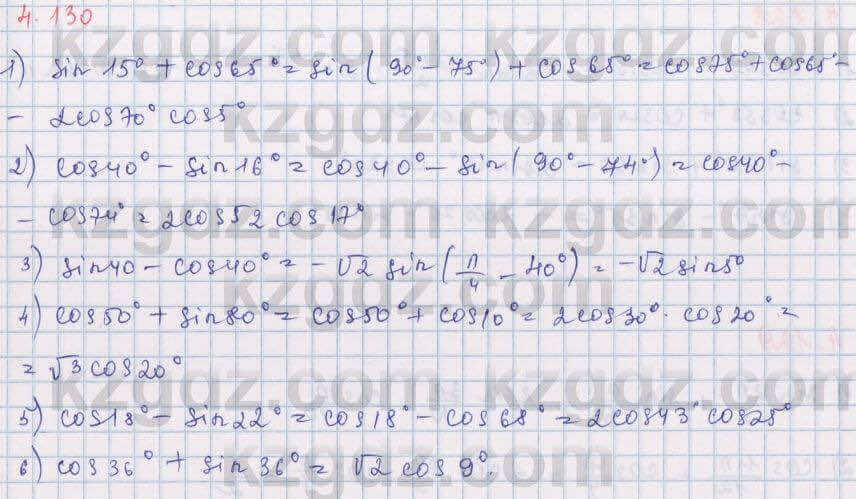 4.130
1) sin 15° + cos 65° = sin ( 90° - 75° ) + cos 65° = cos 75° + cos 65° -
- 2cos 70° cos 5°
2) cos 40° - sin 16° = cos 40° - sin ( 90° - 74° ) = cos 40° -
- cos 74° = 2cos 52 cos 17°
3) sin 40 - cos 40° = - √2 sin ( π/4 - 40° ) = -√2 sin 5°
4) cos 50° + sin 80° = cos 50° + cos 10° = 2cos 30° · cos 20° =
= √3 cos 20°
5) cos 18° - sin 22° = cos 18° - cos 68° = 2cos 43° cos 25°
6) cos 36° + sin 36° = √2 cos 9°.
kzgdz.com
kzgdz.com
kzgdz.com
kzgdz.com
kzgdz.com
kzgdz.com